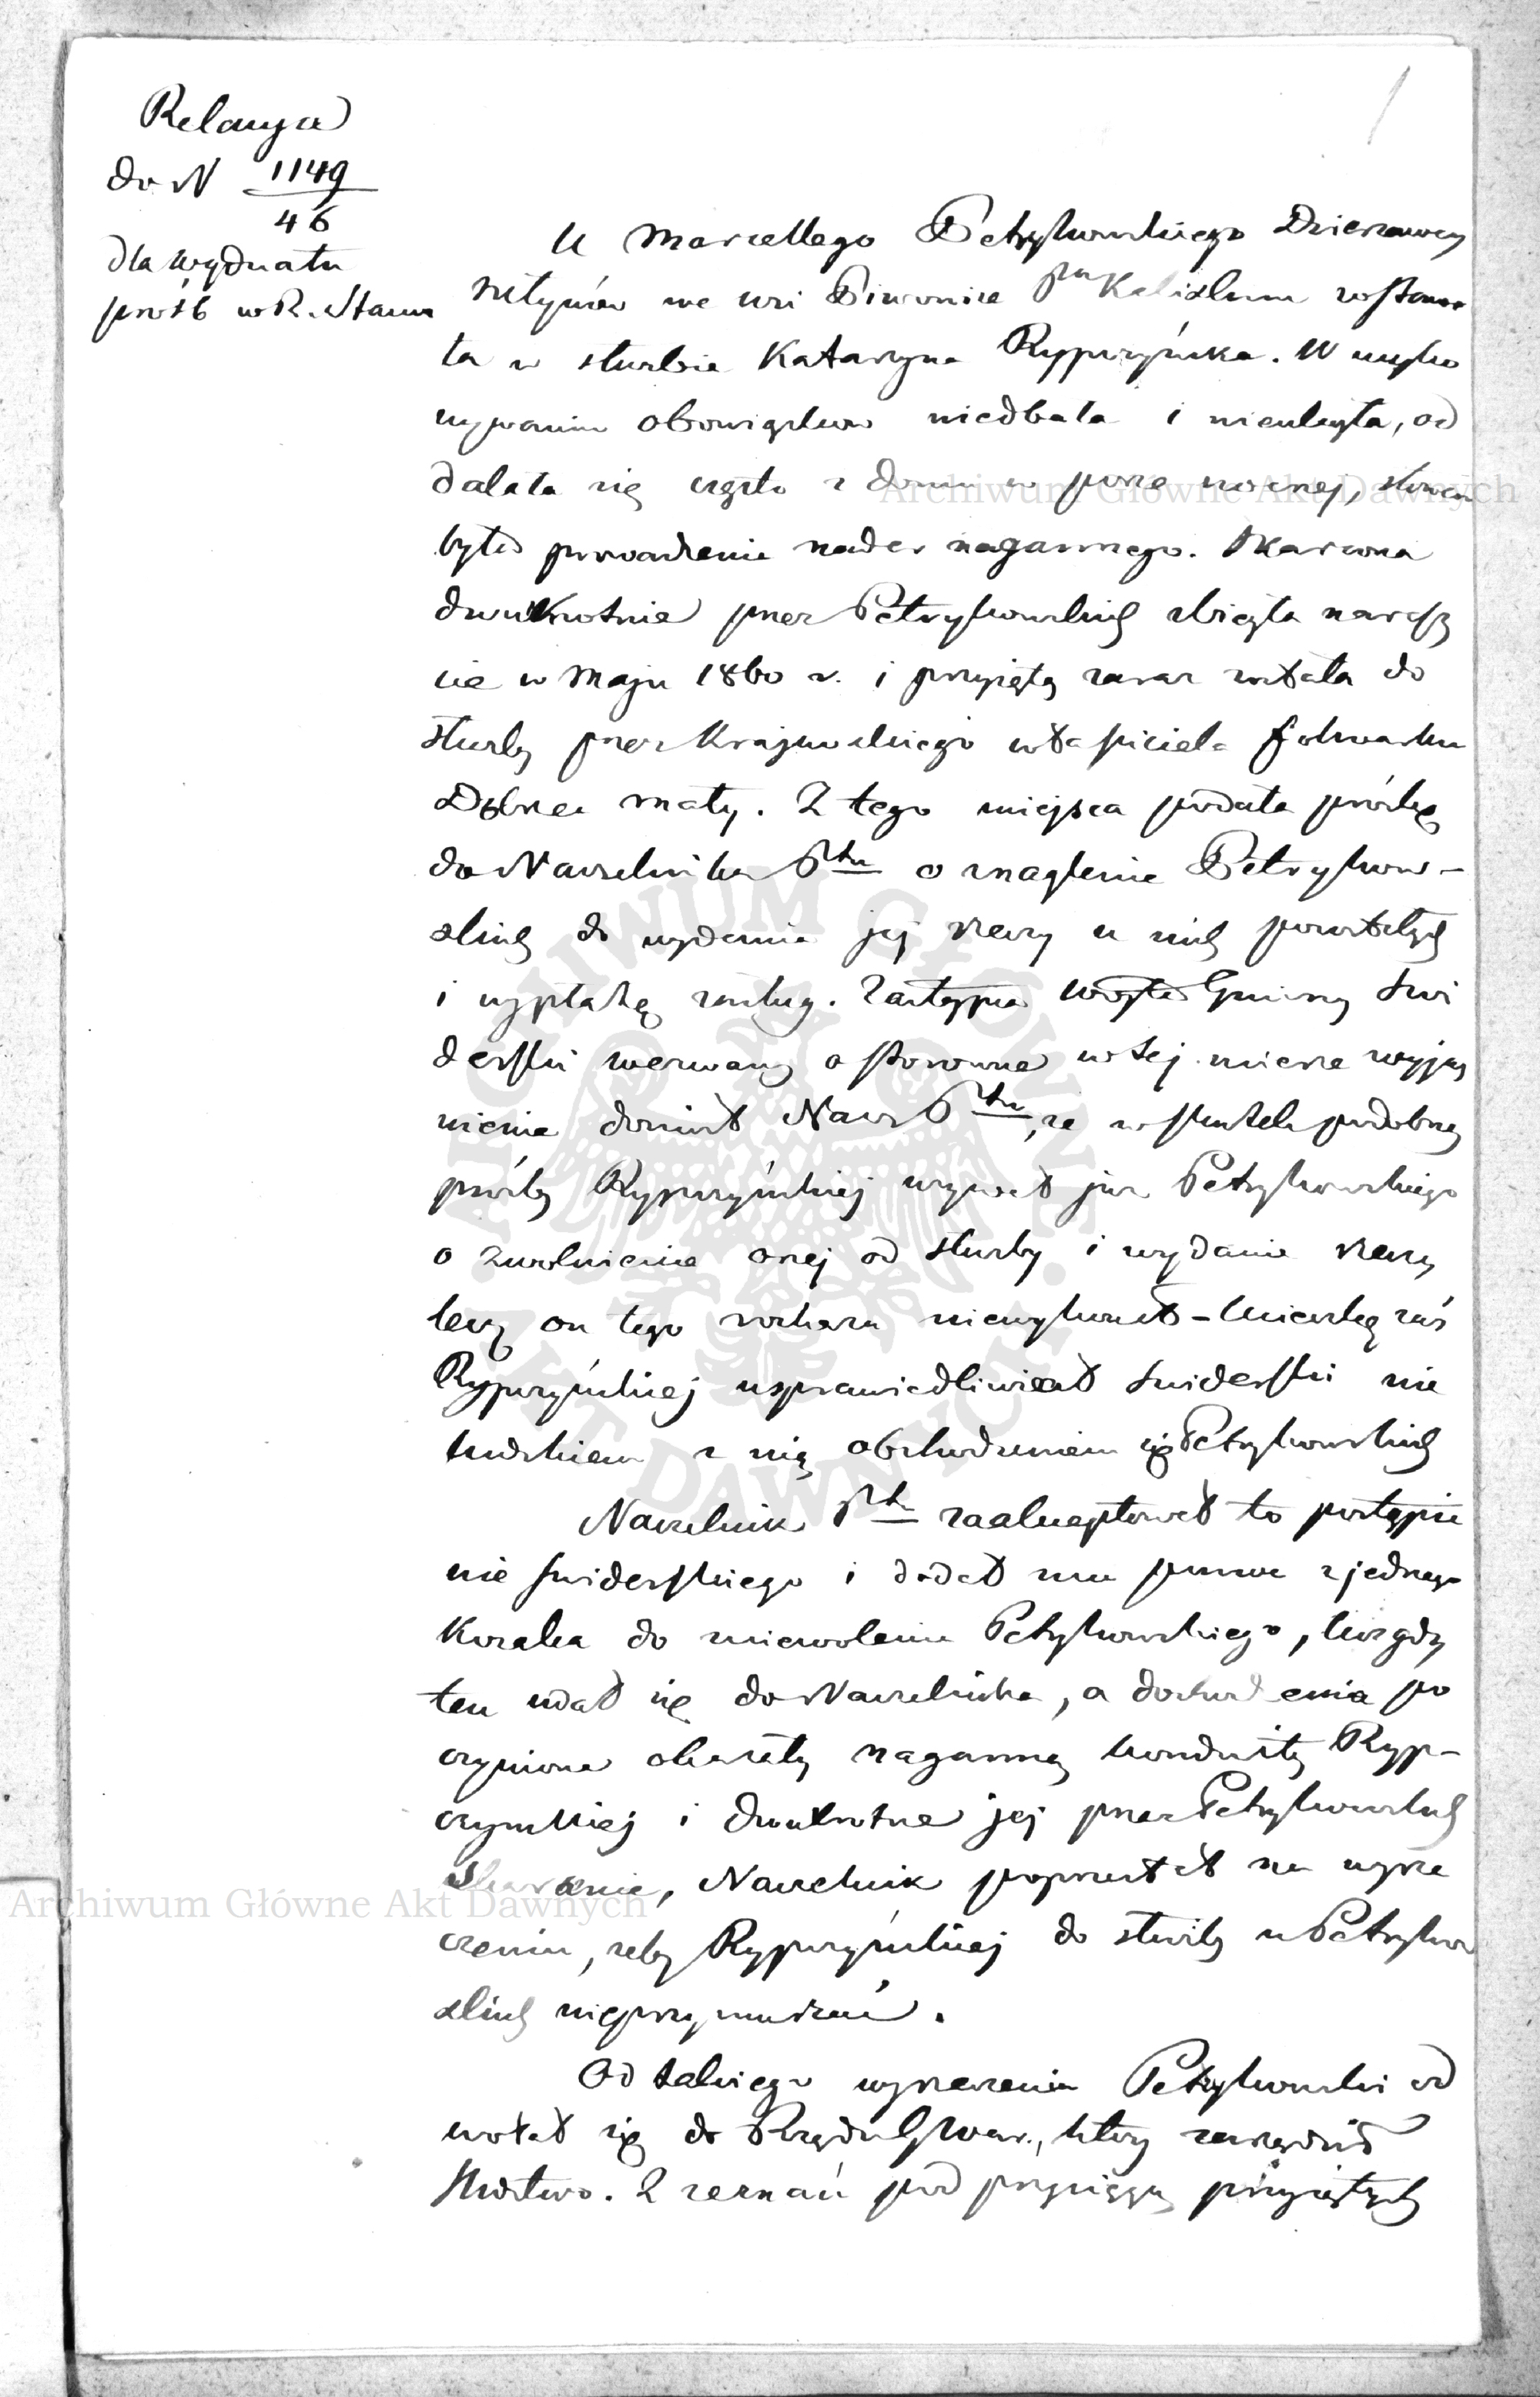 Relacya
do N 1149
46
dla Wydziału
próśb w R. Stanu
U Marcellego Petrykowskiego Dzierżawcy
młynów we wsi Piwonice Ptu Kaliskim zostawa
ła w służbie Katarzyna Rypczyńska. W wyko
nywaniu obowiązków niedbała i nieuległa, od
dalała się często z domu w porze nocnej, słowem
była prowadzenia nader nagannego. Skarcona
dwukrotnie przez Petrykowskich zbiegła naresz
cie w Maju 1860 r. i przyjętą zaraz została do
służby przez Krajewskiego właściciela folwarku
Dobrzec mały. Z tego miejsca podała prośbę
do Naczelnika Ptu o znaglenie Petrykow-
skich do wydania jej rzeczy u nich pozostałych
i wypłatę zasług. Zastępca Wójta Gminy Świ
derski wezwany o stosowne w tej mierze wyjaś
nienie doniósł Nacz Ptu, że w skutek podobnej
prośby Rypczyńskiej wzywał już Petrykowskiego
o zwolnienie onej od służby i wydanie rzeczy
lecz on tego rozkazu niewykonał – Ucieczkę zaś
Rypczyńskiej usprawiedliwiał Świderski nie
ludzkiem z nią obchodzeniem się Petrykowskich
Naczelnik Ptu zaakceptował to postąpie
nie Świderskiego i dodał mu pomoc z jednego
Kozaka do zniewolenia Petrykowskiego, lecz gdy
ten udał się do Naczelnika, a dochodzenia po
czynione okazały naganną konduitę Ryp-
czyńskiej i dwukrotne jej przez Petrykowskich
skarcenie, Naczelnik poprzestał na wyrze
czeniu, żeby Rypczyńskiej do służby u Petrykow
skich nieprzymuszać.
Od takiego wyrzeczenia Petrykowski od
wołał się do Rządu G Warsz., który zarządził
śledztwo. Z zeznań pod przysięgą przyjętych